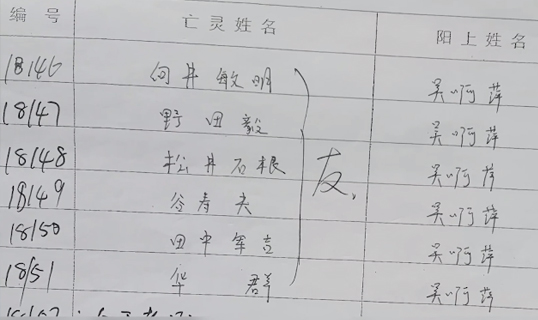 编号 亡灵姓名 阳上姓名
18146 向井敏明 吴啊萍
18147 野田毅 吴啊萍
18148 松井石根 友, 吴啊萍
18149 谷寿夫 吴啊萍
18150 田中军吉 吴啊萍
18151 华群 吴啊萍